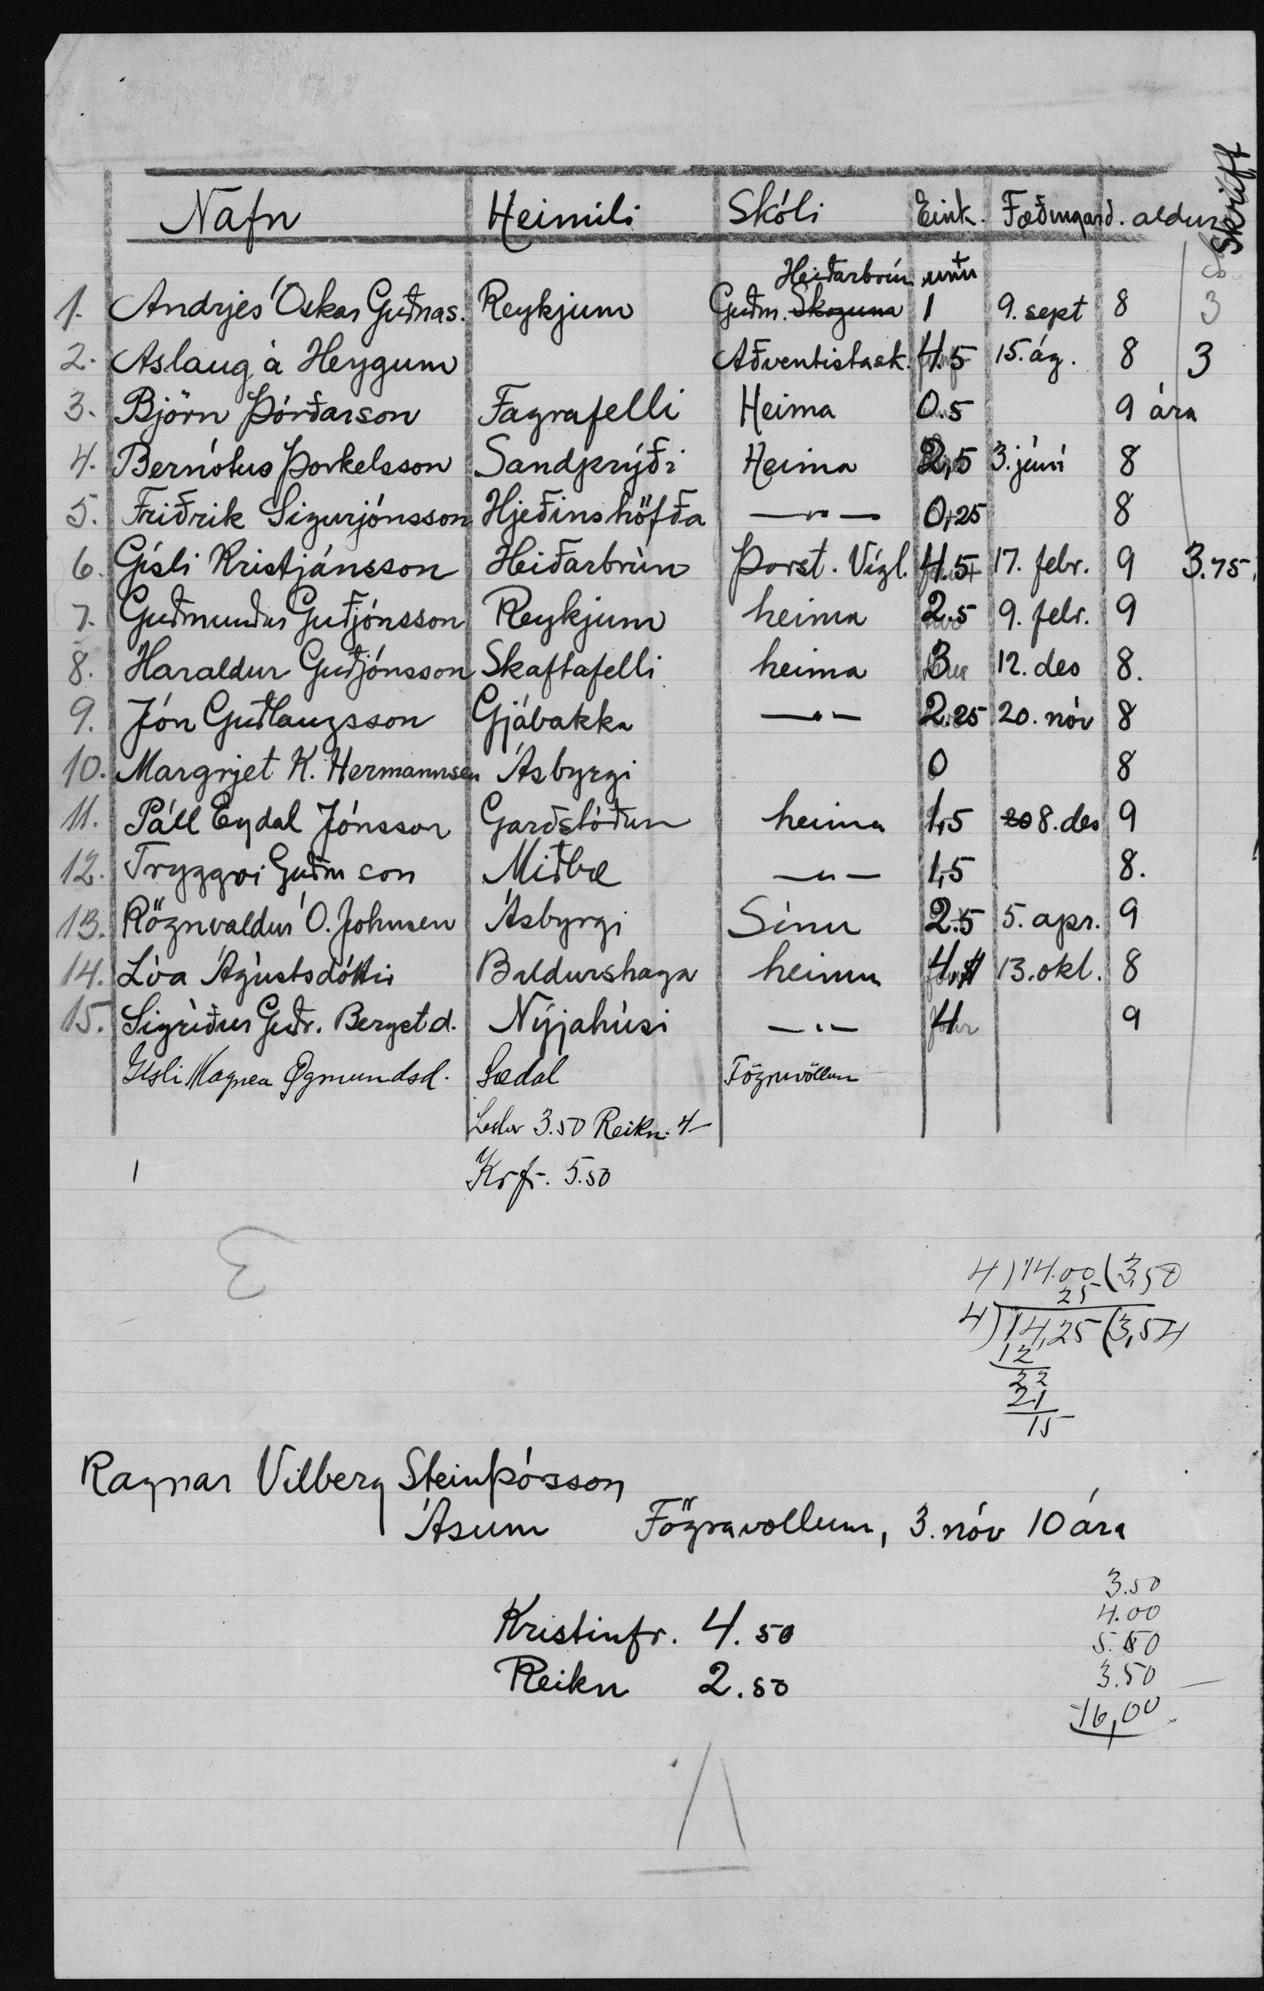 Nafn Heimili Skóli Eink. Fæðingard. aldur Skrift
Heiðarbrún
1. Andrjes Óskar Guðnas. Reykjum Guðm. Skoguna 1 9. sept 8 3
2. Aslaug á Heygum Aðventistask. 4.5 15. ág. 8 3
3. Björn Þórðarson Fagrafelli Heima 0.5 9 ára
4. Bernótus Þorkelsson Sandprýði Heima 2,5 3. júní 8
5. Friðrik Sigurjónsson Hjeðinshöfða —"— 0,25 8
6. Gísli Kristjánsson Heiðarbrún Þorst. Vígl. 4.5 17. febr. 9 3.75
7. Guðmundur Guðjónsson Reykjum heima 2.5 9. febr. 9
8. Haraldur Guðjónsson Skaftafelli heima 3 12. des 8.
9. Jón Guðlaugsson Gjábakka —"— 2.25 20. nóv 8
10. Margrjet K. Hermannsen Ásbyrgi 0 8
11. Páll Eydal Jónsson Garðstöðum heima 1,5 20 8. des 9
12. Tryggvi Guðm son Miðbæ —"— 1,5 8.
13. Rögnvaldur Ó. Johnsen Ásbyrgi Sínu 2.5 5. apr. 9
14. Lóa Ágústsdóttir Baldurshaga heima 4 13. okt. 8
15. Sigríður Guðr. Bergst d. Nýjahúsi —"— 4 9
Magnea Ögmundsd. Sædal Fögruvöllum
Lestur 3.50 Reikn. 4—
Krfr. 5.50
1
3
4)14.00(3,50
25
4)14,25(3,54
12
22
21
15
Ragnar Vilberg Steinþórsson
Ásum Fögravollum, 3. nóv 10 ára
3.50
Kristinfr. 4.50 4.00
5.50
Reikn 2.50 3.50
16,00